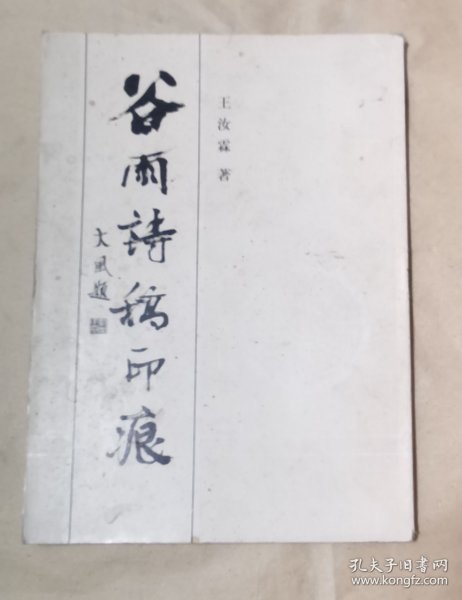 王汝霖 著
谷雨詩稿印痕
大風題
孔夫子旧书网
www.kongfz.com